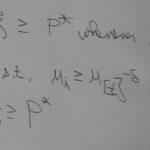 ≥ P* whenever
s.t. μᵢ ≥ μ_[t] - δ
≥ P*